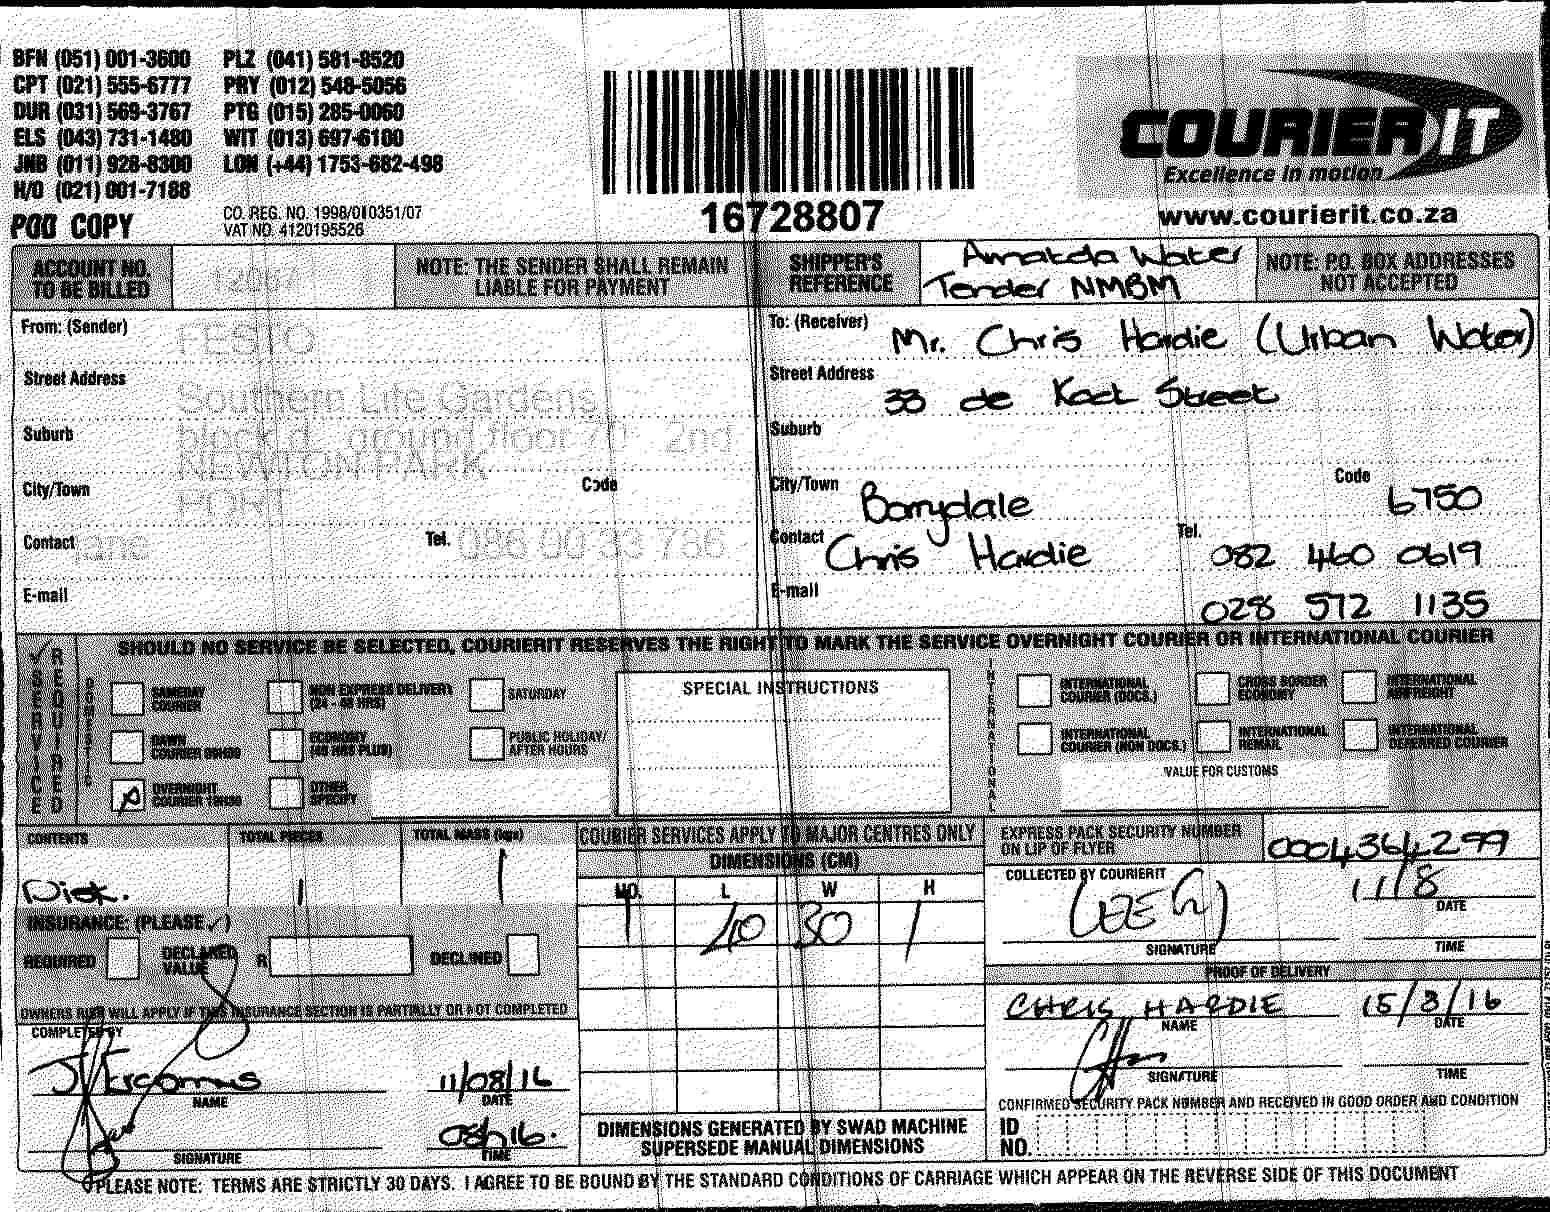 BFN (051) 001-3600 PLZ (041) 581-8520
CPT (021) 555-6777 PRY (012) 548-5056
DUR (031) 569-3767 PTG (015) 285-0060
ELS (043) 731-1480 WIT (013) 697-6100
JNB (011) 928-8300 LON (+44) 1753-682-498
H/O (021) 001-7188
POD COPY
CO. REG. NO. 1998/010351/07
VAT NO. 4120195526
16728807
COURIER IT
Excellence in motion
www.courierit.co.za
ACCOUNT NO. TO BE BILLED 12067
NOTE: THE SENDER SHALL REMAIN LIABLE FOR PAYMENT
SHIPPER'S REFERENCE
Amatola Water
Tender NMBM
NOTE: P.O. BOX ADDRESSES NOT ACCEPTED
From: (Sender) FESTO
Street Address Southern Life Gardens
Suburb block d ground floor 70 2nd
NEWTON PARK
City/Town PORT Code
Contact jane Tel. 086 00 33 786
E-mail
To: (Receiver) Mr. Chris Hardie (Urban Water)
Street Address 33 de Kock Street
Suburb
City/Town Barrydale Code 6750
Contact Chris Hardie Tel. 082 460 0619
E-mail 028 572 1135
✓ SERVICE REQUIRED
SHOULD NO SERVICE BE SELECTED, COURIERIT RESERVES THE RIGHT TO MARK THE SERVICE OVERNIGHT COURIER OR INTERNATIONAL COURIER
DOMESTIC
SAMEDAY COURIER
NON EXPRESS DELIVERY (24 - 48 HRS)
SATURDAY
DAWN COURIER 09H00
ECONOMY (48 HRS PLUS)
PUBLIC HOLIDAY/ AFTER HOURS
OVERNIGHT COURIER 10H30
OTHER SPECIFY
SPECIAL INSTRUCTIONS
INTERNATIONAL
INTERNATIONAL COURIER (DOCS.)
CROSS BORDER ECONOMY
INTERNATIONAL AIRFREIGHT
INTERNATIONAL COURIER (NON DOCS.)
INTERNATIONAL REMAIL
INTERNATIONAL DEFERRED COURIER
VALUE FOR CUSTOMS
CONTENTS TOTAL PIECES TOTAL MASS (kgs)
Disk. 1 1
INSURANCE: (PLEASE ✓)
REQUIRED DECLARED VALUE R DECLINED
OWNERS RISK WILL APPLY IF THIS INSURANCE SECTION IS PARTIALLY OR NOT COMPLETED
COMPLETED BY
11/08/16
NAME DATE
08h16.
SIGNATURE TIME
COURIER SERVICES APPLY TO MAJOR CENTRES ONLY
DIMENSIONS (CM)
NO. L W H
1 40 30 1
DIMENSIONS GENERATED BY SWAD MACHINE SUPERSEDE MANUAL DIMENSIONS
EXPRESS PACK SECURITY NUMBER ON LIP OF FLYER 0004364299
COLLECTED BY COURIERIT
11/8
DATE
SIGNATURE TIME
PROOF OF DELIVERY
CHRIS HARDIE 15/8/16
NAME DATE
SIGNATURE TIME
CONFIRMED SECURITY PACK NUMBER AND RECEIVED IN GOOD ORDER AND CONDITION
ID NO.
PLEASE NOTE: TERMS ARE STRICTLY 30 DAYS. I AGREE TO BE BOUND BY THE STANDARD CONDITIONS OF CARRIAGE WHICH APPEAR ON THE REVERSE SIDE OF THIS DOCUMENT